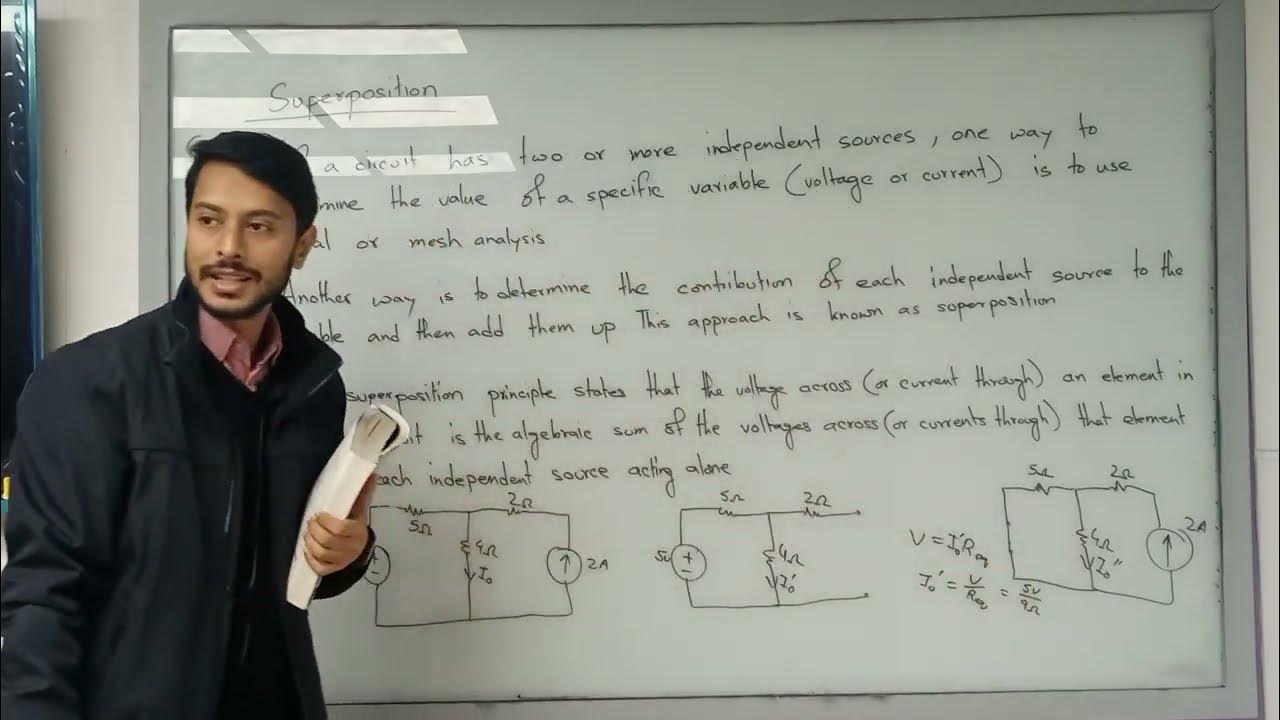 Superposition
a circuit has two or more independent sources, one way to
mine the value of a specific variable (voltage or current) is to use
al or mesh analysis
Another way is to determine the contribution of each independent source to the
ble and then add them up This approach is known as superposition
superposition principle states that the voltage across (or current through) an element in
it is the algebraic sum of the voltages across (or currents through) that element
each independent source acting alone
5Ω 2Ω 4Ω I₀ 2A
5Ω 2Ω 5V 4Ω I₀'
V = I₀'Req
I₀' = V/Req = 5V/9Ω
5Ω 2Ω 4Ω I₀'' 2A